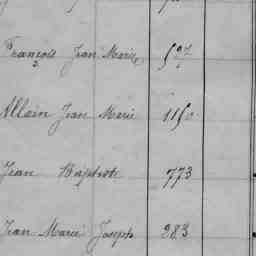 François Jean Marie 597
Allain Jean Marie 1150
Jean Baptiste 773
Jean Marie Joseph 283